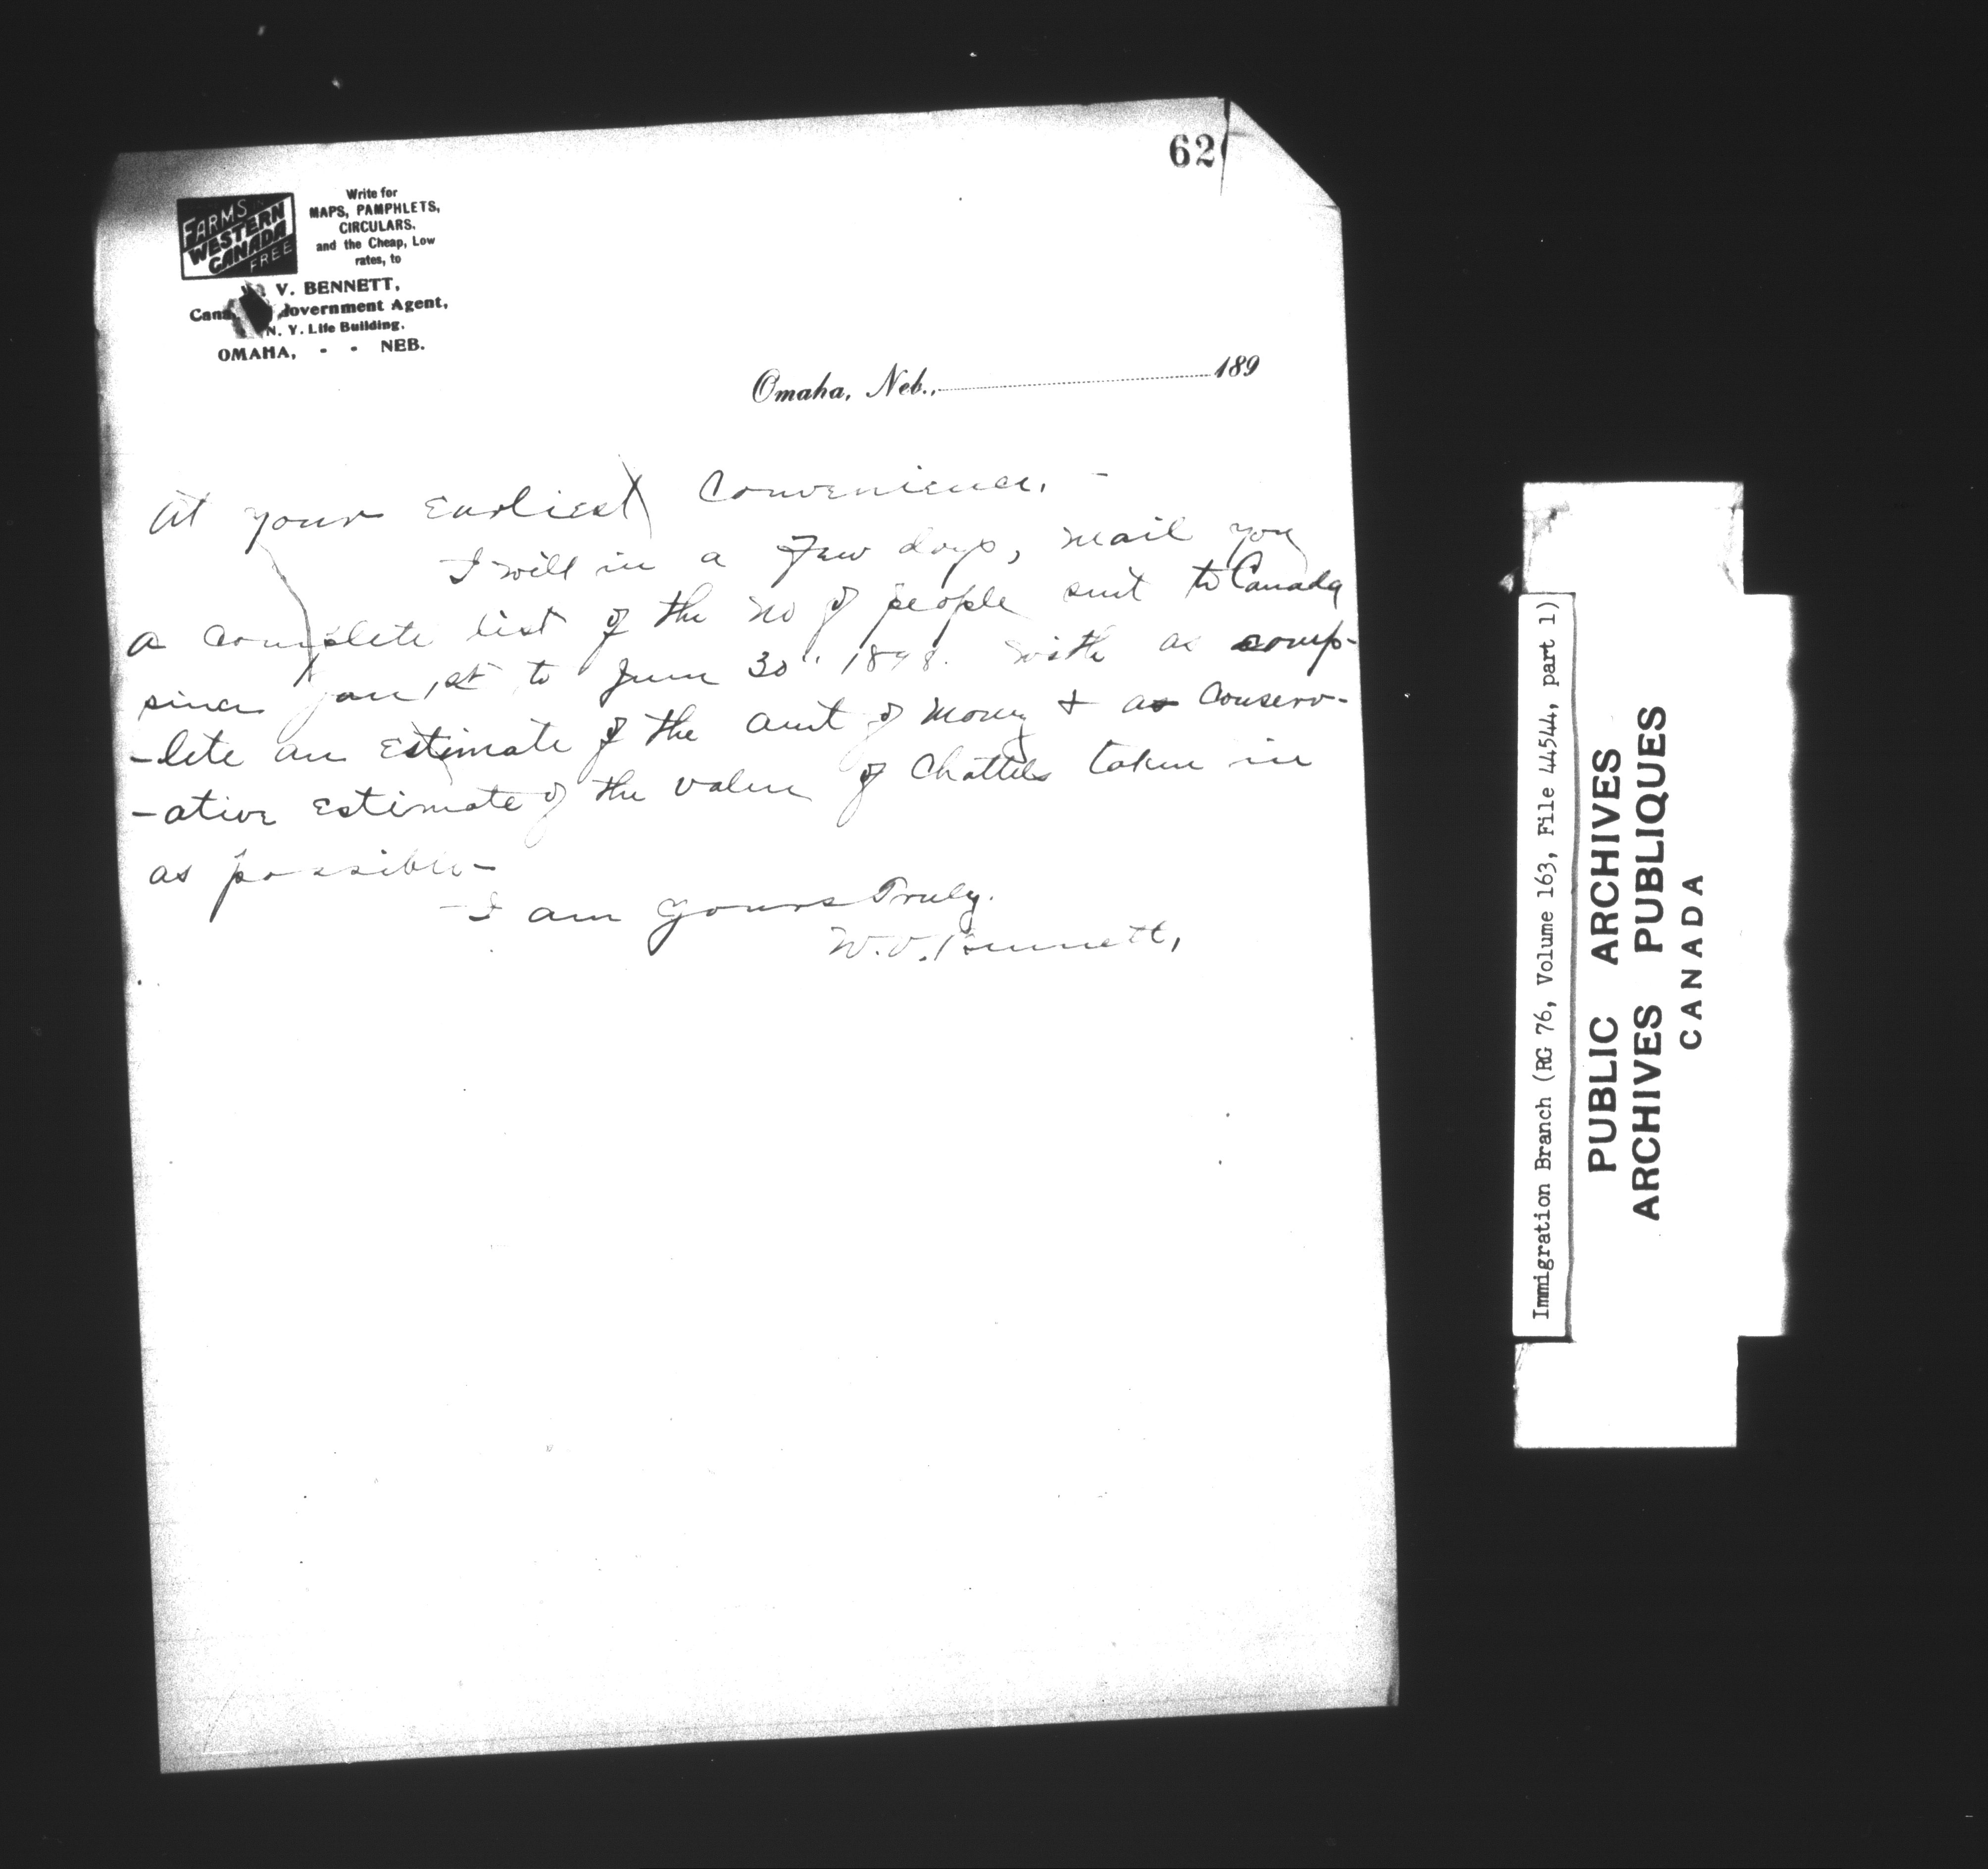 62
FARMS IN
WESTERN
CANADA
FREE
Write for
MAPS, PAMPHLETS,
CIRCULARS,
and the Cheap, Low
rates, to
V. BENNETT,
Government Agent,
N. Y. Life Building,
OMAHA, - - NEB.
Omaha, Neb., 189
At your Earliest Convenience. -
I will in a few days, mail you
a complete list of the no of people sent to Canada
since Jan 1st to June 30" 1898. with as comp-
-lete an Estimate of the amt of money & as Conserv-
-ative Estimate of the value of Chattels taken in
as possible -
I am yours Truly.
W.V. Bennett,
Immigration Branch (RG 76, Volume 163, File 44544, part 1)
PUBLIC ARCHIVES
ARCHIVES PUBLIQUES
CANADA